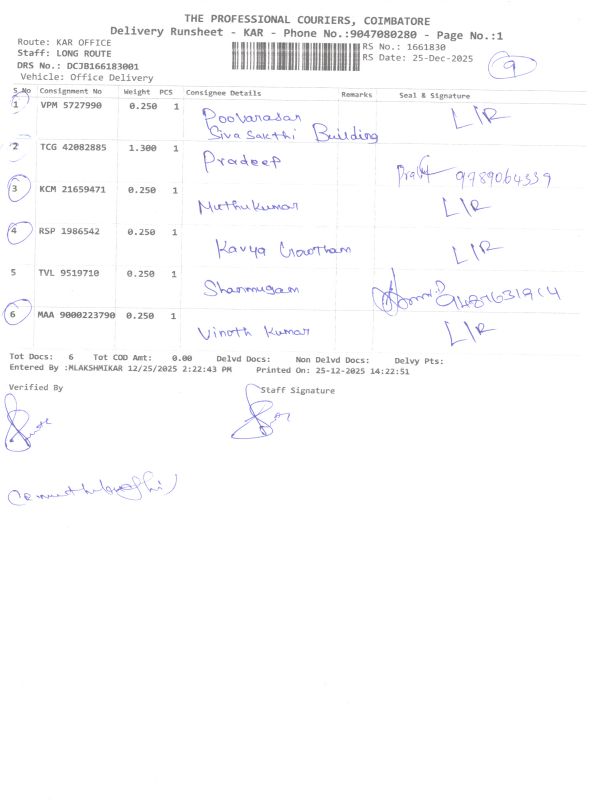 THE PROFESSIONAL COURIERS, COIMBATORE
Delivery Runsheet - KAR - Phone No.:9047080280 - Page No.:1
Route: KAR OFFICE
RS No.: 1661830
Staff: LONG ROUTE
RS Date: 25-Dec-2025
9
DRS No.: DCJB166183001
Vehicle: Office Delivery
S No Consignment No Weight PCS Consignee Details Remarks Seal & Signature
1 VPM 5727990 0.250 1 Poovarasan L/R
Siva Sakthi Building
2 TCG 42082885 1.300 1 Pradeep
3 KCM 21659471 0.250 1 Muthukumar L/R
4 RSP 1986542 0.250 1 Kavya Gowtham L/R
5 TVL 9519710 0.250 1 Shanmugam
6 MAA 9000223790 0.250 1 Vinoth Kumar L/R
Tot Docs: 6 Tot COD Amt: 0.00 Delvd Docs: Non Delvd Docs: Delvy Pts:
Entered By :MLAKSHMIKAR 12/25/2025 2:22:43 PM Printed On: 25-12-2025 14:22:51
Verified By Staff Signature